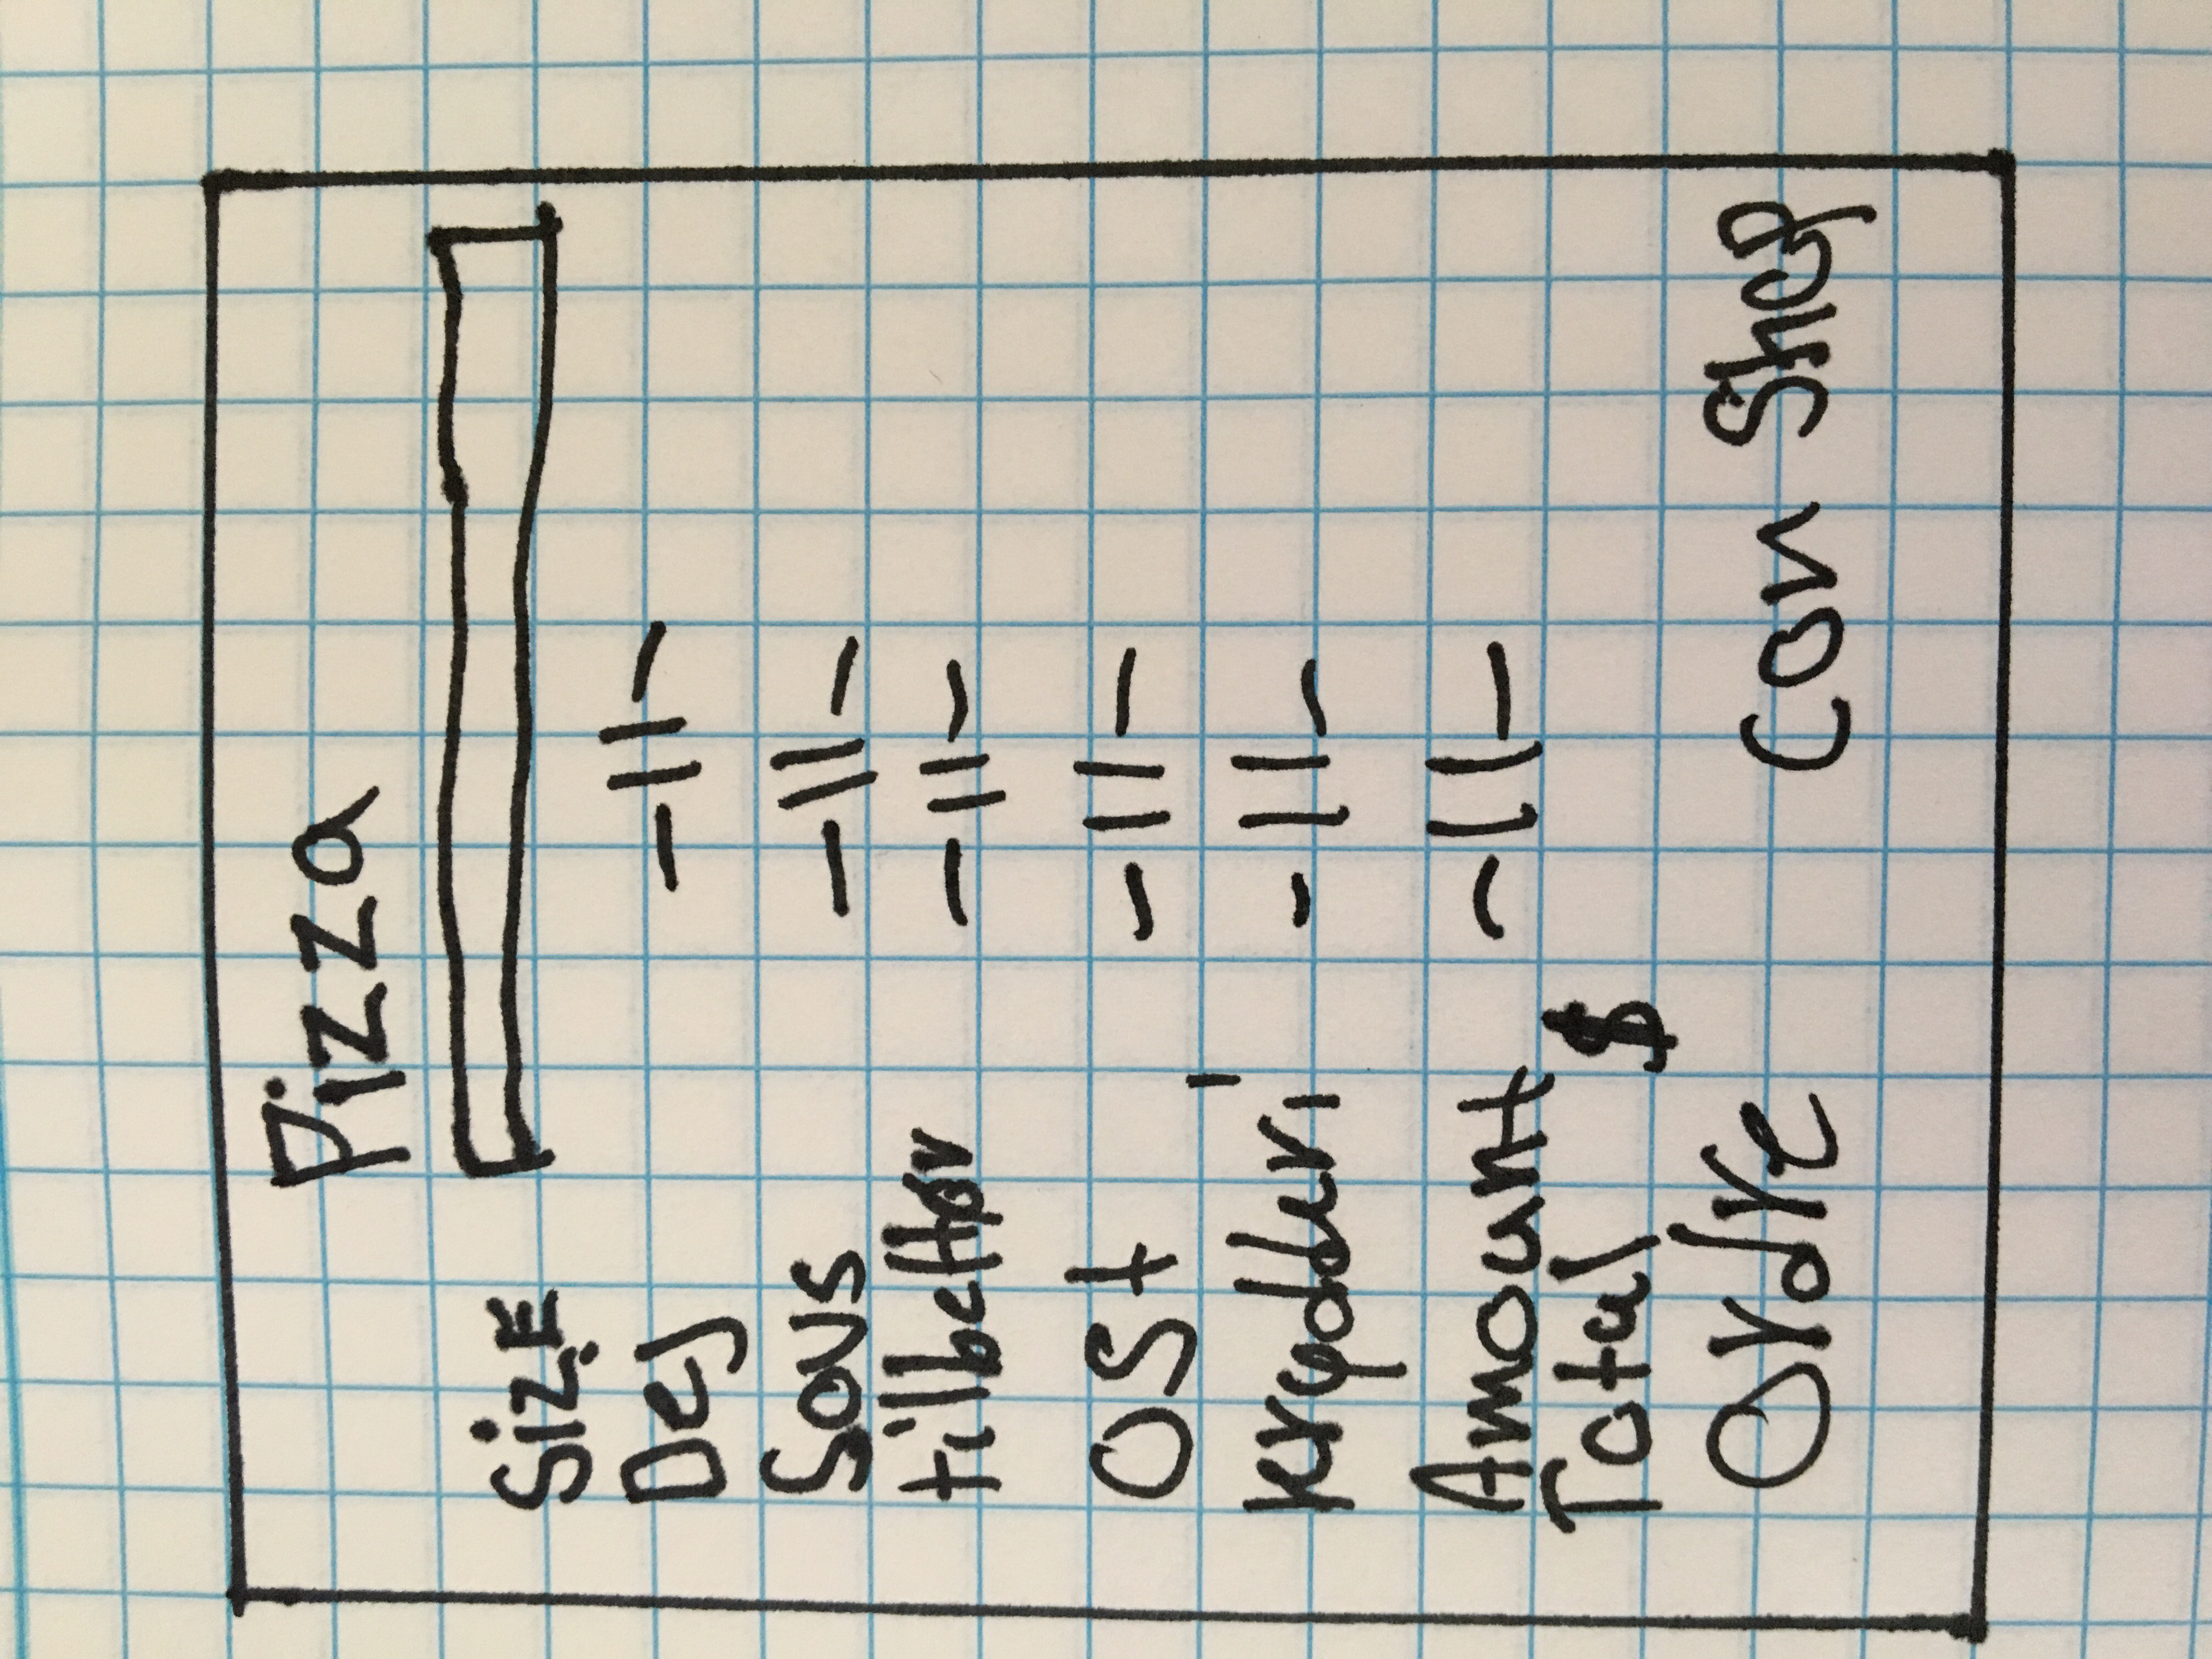 Pizza
Size
Dej - || -
Sovs - || -
tilbehør - || -
OSt - || -
krydderi - || -
Amount - || -
Total $
Ordre con Shop